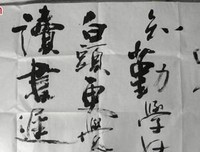 知勤學
白頭更
讀書遲